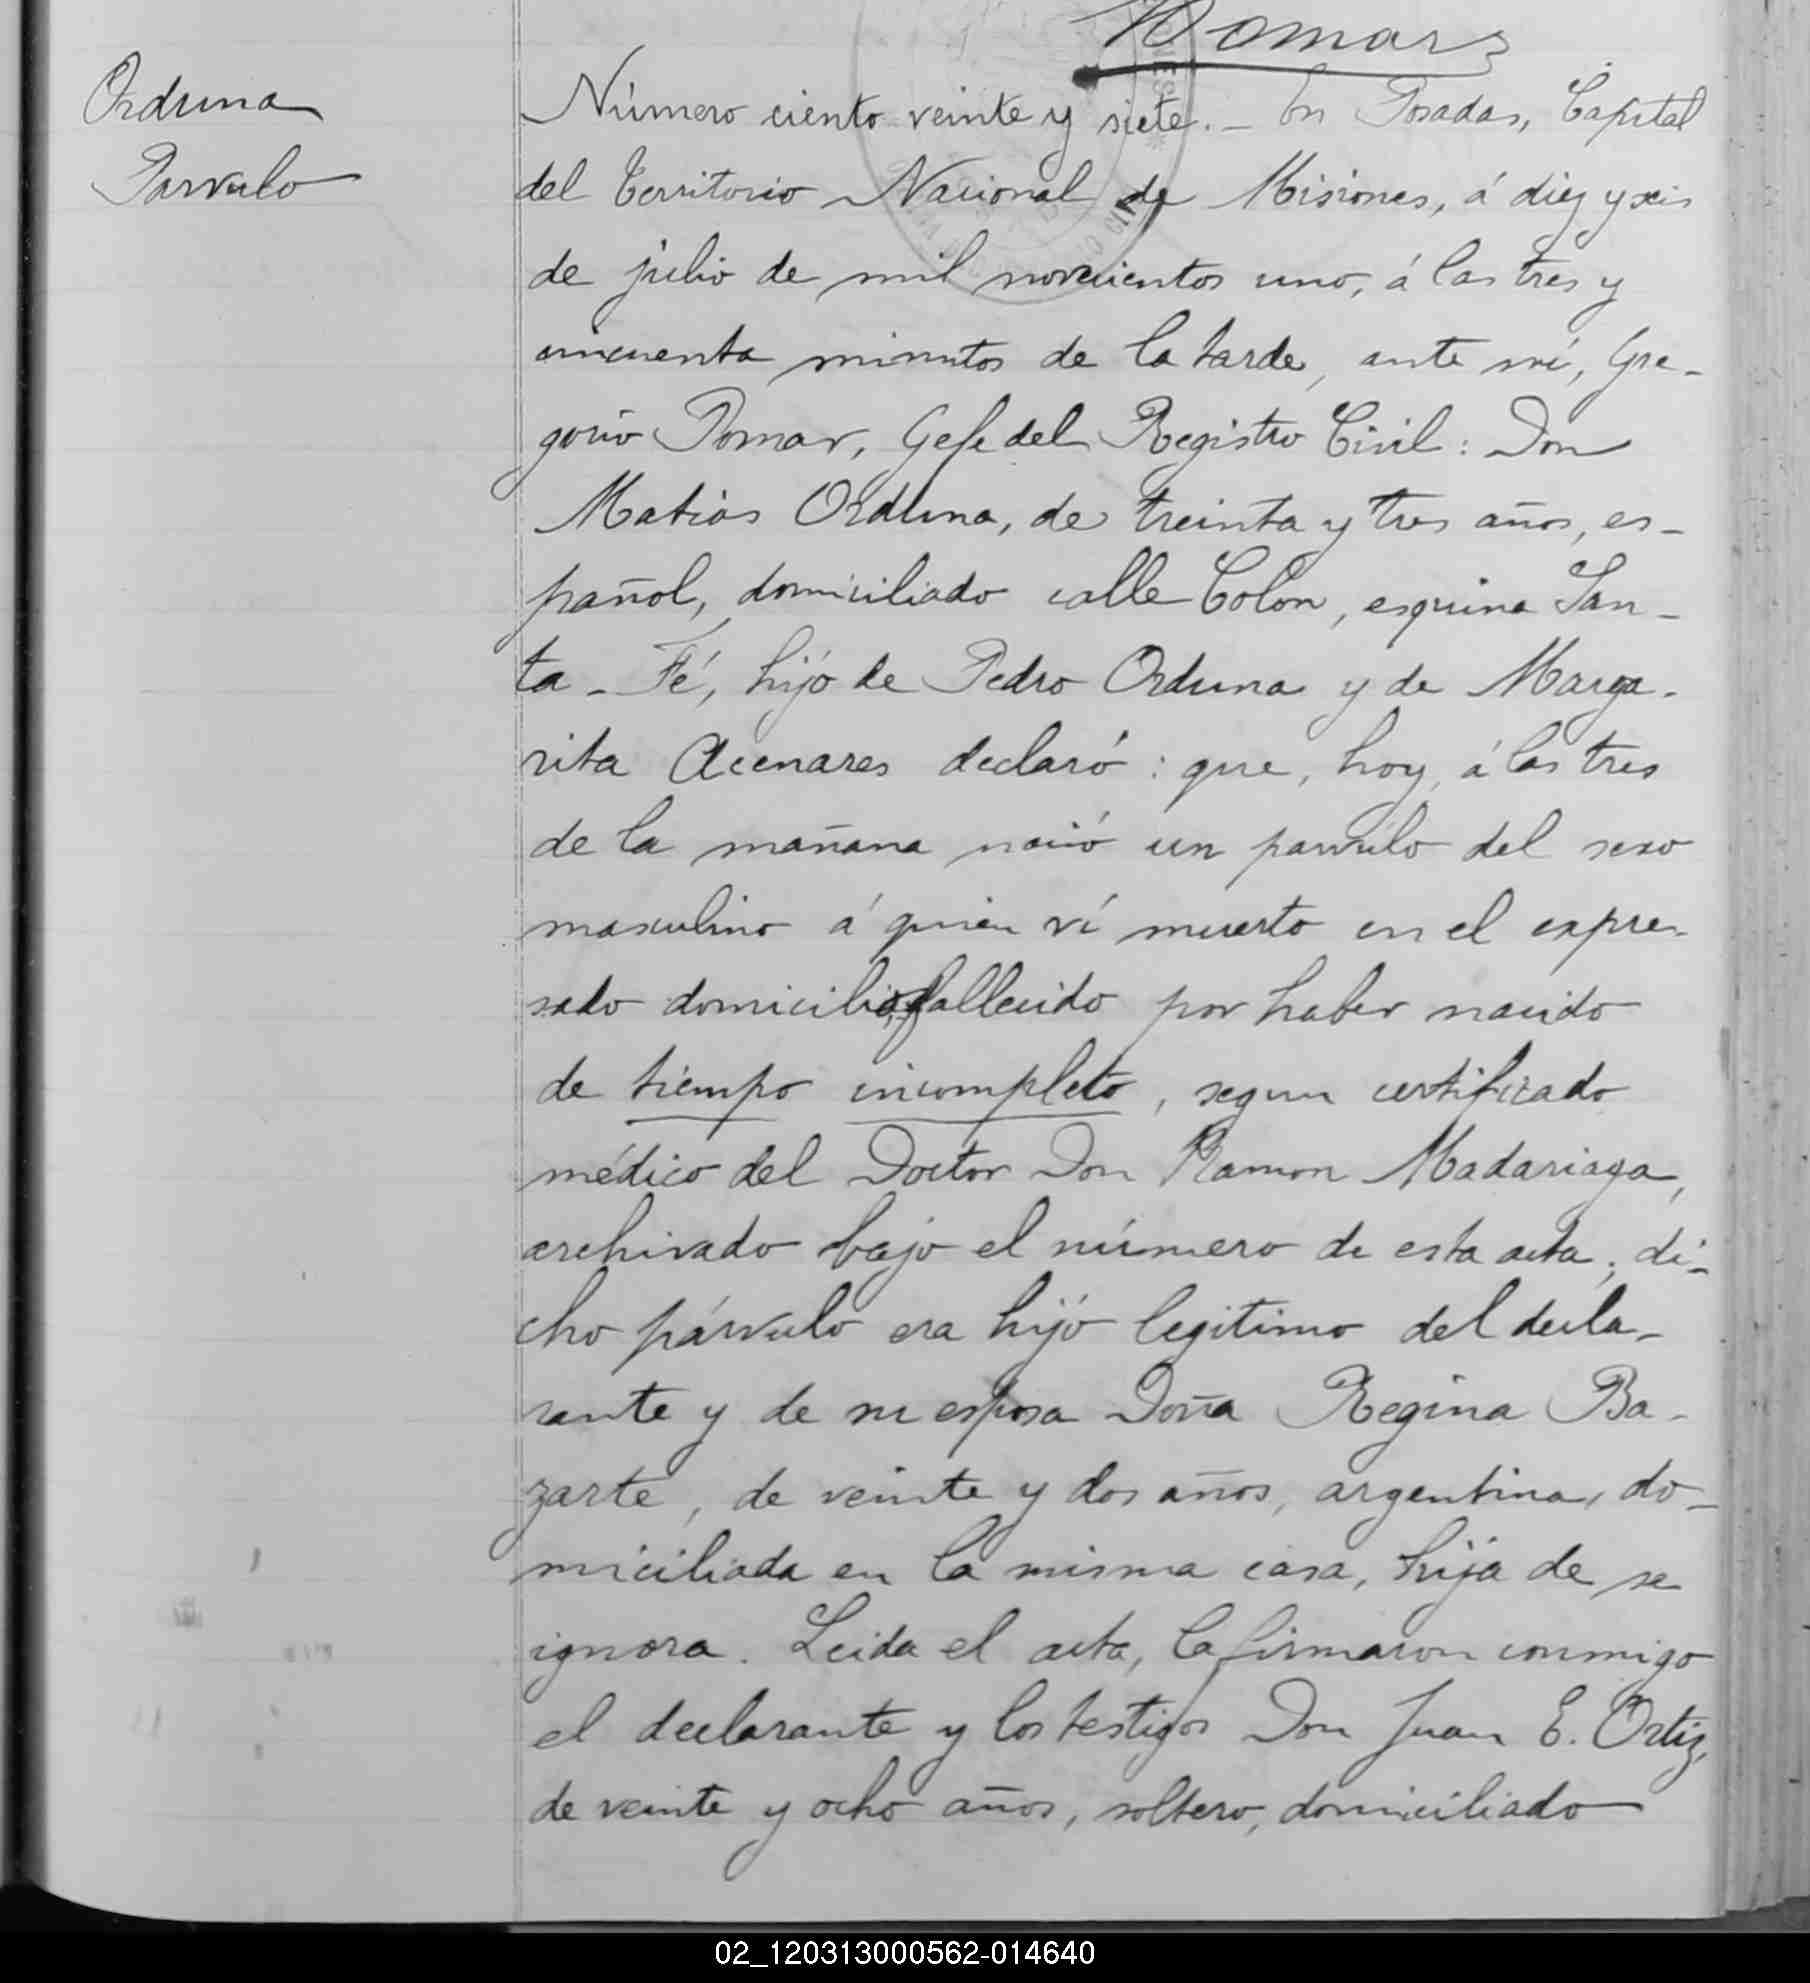 Pomar
Orduna
Parvulo
Número ciento veinte y siete. – En Posadas, Capital
del Territorio Nacional de Misiones, á diez y seis
de julio de mil novecientos uno, á las tres y
cincuenta minutos de la tarde, ante mí, Gre-
gorio Pomar, Gefe del Registro Civil: Don
Matias Orduna, de treinta y tres años, es-
pañol, domiciliado calle Colon, esquina San-
ta - Fé, hijo de Pedro Orduna y de Marga-
rita Acenares declaró: que, hoy, á las tres
de la mañana nació un parvulo del sexo
masculino á quien ví muerto en el expre-
sado domicilio, fallecido por haber nacido
de tiempo incompleto, segun certificado
médico del Doctor Don Ramon Madariaga,
archivado bajo el número de esta acta; di-
cho párvulo era hijo legitimo del decla-
rante y de su esposa Doña Regina Ba-
zarte, de veinte y dos años, argentina, do-
miciliada en la misma casa, hija de se
ignora. Leida el acta, la firmaron conmigo
el declarante y los testigos Don Juan E. Ortiz,
de veinte y ocho años, soltero, domiciliado
02_120313000562-014640